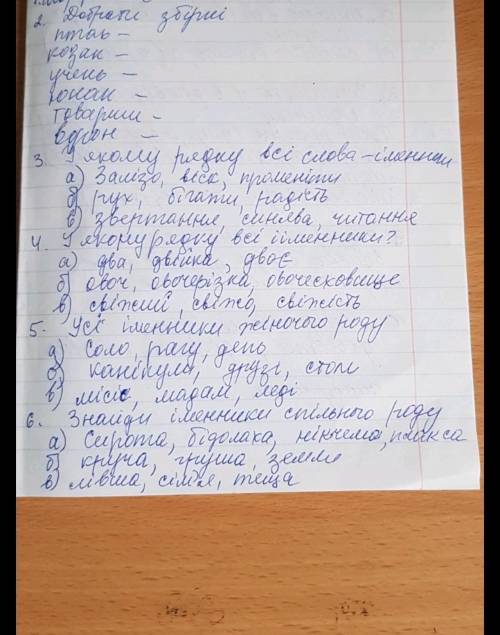 2. Добрати збірні
птах –
козак –
учень –
юнак –
товариш –
ворон –
3. У якому рядку всі слова – іменники
а) Залізо, віск, променіти
б) рух, бігати, радість
в) звертання, синява, читання
4. У якому рядку всі іменники?
а) два, двійка, двоє
б) овоч, овочерізка, овочесховище
в) свіжий, свіжо, свіжість
5. Усі іменники жіночого роду
а) Соло, рагу, день
б) канікули, друзі, столи
в) місіс, мадам, леді
6. Знайди іменники спільного роду
а) Сирота, бідолаха, нікчема, плакса
б) круча, груша, земля
в) лівша, сім'я, теща